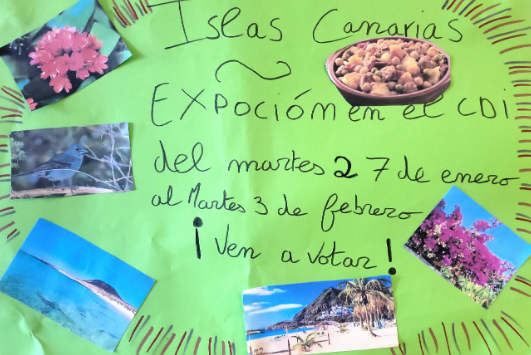 Islas Canarias
Expoción en el CDI
del martes 27 de enero
al Martes 3 de febrero
¡Ven a votar!